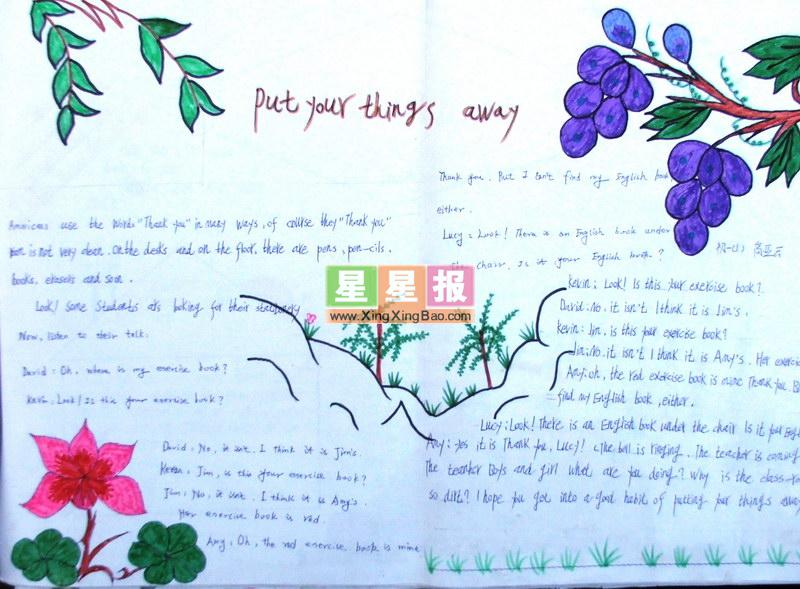 put your things away
Americas use the words "Thank you" in many ways, of course they "Thank you"
is not very clean. On the desks and on the floor, there are pens, pen-cils.
books, erasers and soon.
Look! some students are looking for their stationery
Now, listen to their talk.
David: Oh, where is my exercise book?
Kevin: Look! Is this your exercise book?
David: No, it isn't. I think it is Jim's.
Keven: Jim, is this your exercise book?
Jim: No, it isn't. I think it is Any's.
Her exercise book is red.
Any: Oh, the red exercise book is mine
Thank you. But I can't find my English book
either.
Lucy: Look! There is an English book under
the chair, Is it your English book?
初一
星星报
www.XingXingBao.com
Kevin: Look! Is this your exercise book?
David: no, it isn't I think it is Jim's.
Kevin: Jim, is this your exercise book?
Jim: No. it isn't I think it is Any's. Her exercis
Any: oh, the red exercise book is mine Thank you B
find my English book, either.
Lucy: Look! There is an English book under the chair Is it your Engl
Any: Yes it is Thank you, Lucy! The bell is ringing. The teacher is coming
The teanher Boys and girl what are you doing? Why is the class-ro
so dirt? I hope you got into a good habit of putting your things away